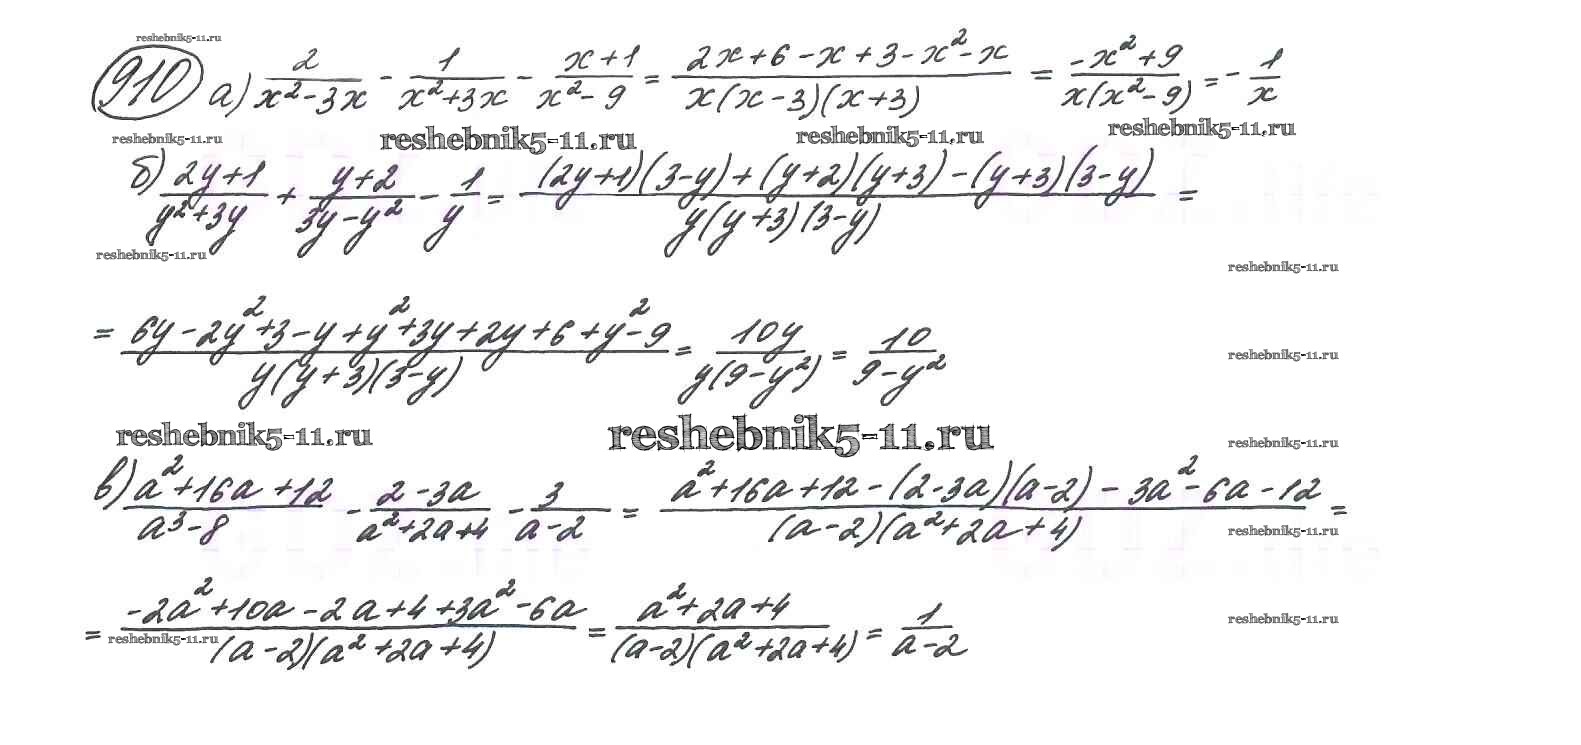 reshebnik5-11.ru
910 а) 2/(x²-3x) - 1/(x²+3x) - (x+1)/(x²-9) = (2x+6-x+3-x²-x)/(x(x-3)(x+3)) = (-x²+9)/(x(x²-9)) = -1/x
reshebnik5-11.ru reshebnik5-11.ru reshebnik5-11.ru reshebnik5-11.ru
б) (2y+1)/(y²+3y) + (y+2)/(3y-y²) - 1/y = ((2y+1)(3-y)+(y+2)(y+3)-(y+3)(3-y))/(y(y+3)(3-y)) =
reshebnik5-11.ru reshebnik5-11.ru
= (6y-2y²+3-y+y²+3y+2y+6+y²-9)/(y(y+3)(3-y)) = 10y/(y(9-y²)) = 10/(9-y²)
reshebnik5-11.ru
reshebnik5-11.ru reshebnik5-11.ru reshebnik5-11.ru
в) (a²+16a+12)/(a³-8) - (2-3a)/(a²+2a+4) - 3/(a-2) = (a²+16a+12-(2-3a)(a-2)-3a²-6a-12)/((a-2)(a²+2a+4)) =
reshebnik5-11.ru
= (-2a²+10a-2a+4+3a²-6a)/((a-2)(a²+2a+4)) = (a²+2a+4)/((a-2)(a²+2a+4)) = 1/(a-2)
reshebnik5-11.ru reshebnik5-11.ru